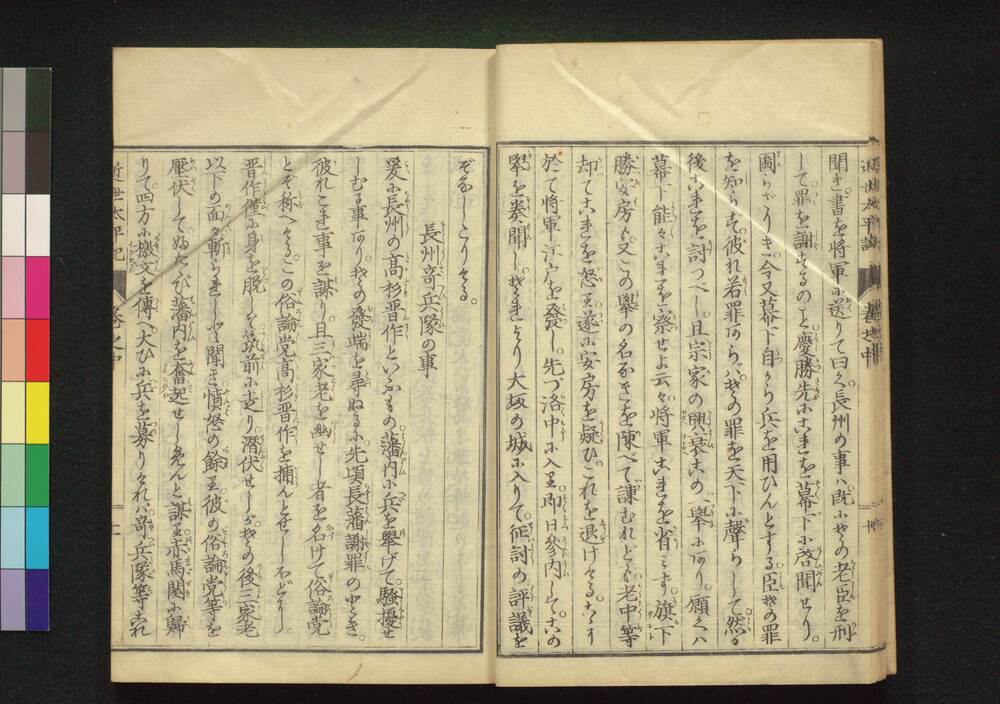 聞き。書を将軍に送りて曰く長州の事ハ既にその老臣を刑
して罪を謝するのミ慶勝先にこれを幕下に啓聞せり。
圖らざりき今又幕下自から兵を用ひんとする臣その罪
を知らず。彼れ若罪あらバその罪を天下に聲らして。然る
後これを討つべし。且宗家の興衰この一擧にあり。願くハ
幕下能々これを察せよ云々。将軍これを省ミず。旗下
勝安房も又この擧の名なきを陳べて諫むれども老中等
却てこれを怒り遂に安房を疑ひこれを退けける。これより
於て将軍江戸を發し。先づ洛中に入り即日參内して。この
擧を奏聞し。それより大坂の城に入りて。征討の評議を
ぞなしたりける。
長州奇兵隊の事
爰に長州の高杉晋作といふもの藩内に兵を擧げて騒擾せ
しむる事あり。その發端を尋ぬるに。先頃長藩謝罪のとき。
彼れこれ事を謀り。且三家老を幽せし者を名けて俗論党
とぞ称へける。この俗論党高杉晋作を捕んとせしほどに。
晋作僅に身を脱して筑前に走り。潜伏せしが。その後三家老
以下の面々斬られしと聞き憤怒の餘り彼の俗論党等を
壓伏して。ふたゝび藩内を奮起せしめんと謀り亦馬関に歸
りて四方に檄文を傳へ大ひに兵を募りければ奇兵隊等これ
近世太平記